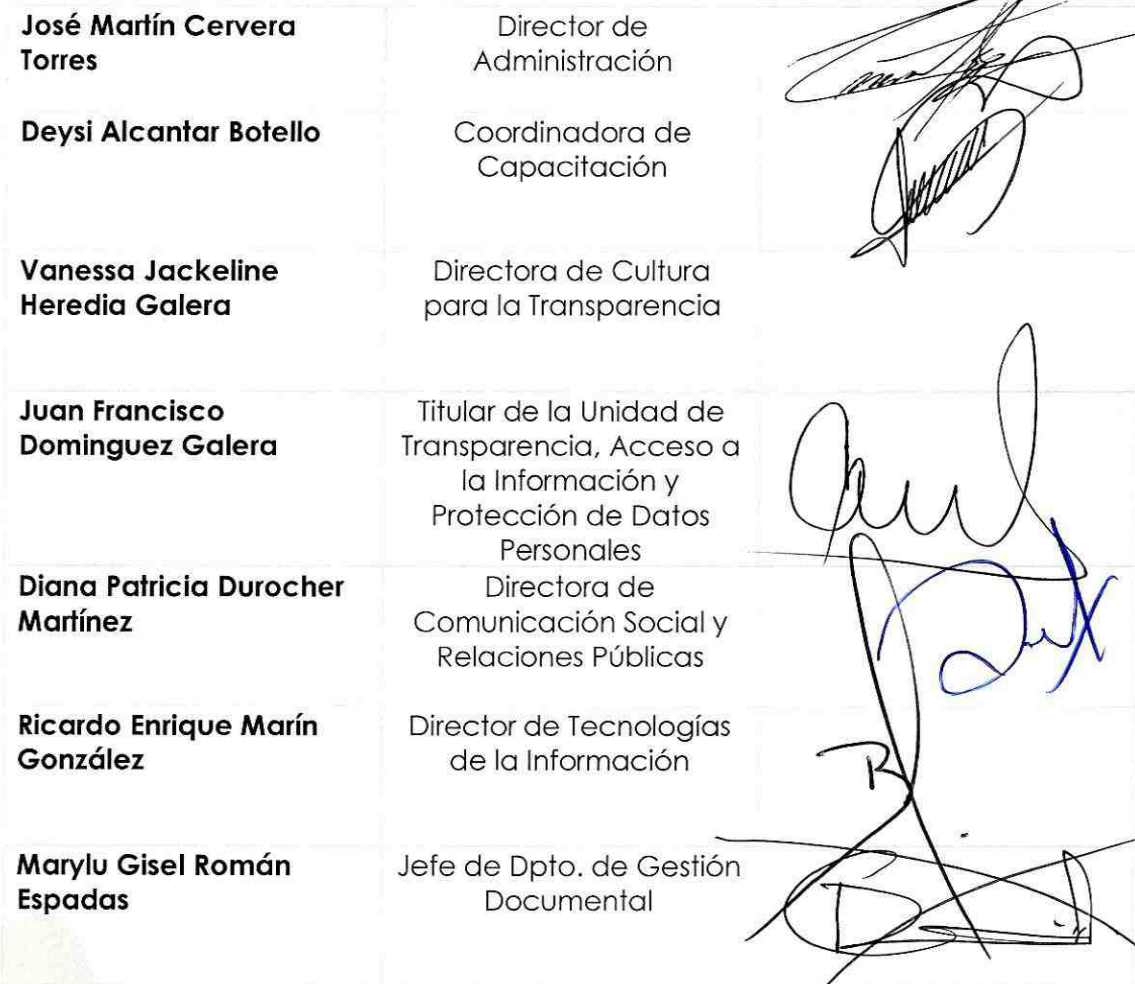 José Martín Cervera
Torres
Director de
Administración
Deysi Alcantar Botello
Coordinadora de
Capacitación
Vanessa Jackeline
Heredia Galera
Directora de Cultura
para la Transparencia
Juan Francisco
Dominguez Galera
Titular de la Unidad de
Transparencia, Acceso a
la Información y
Protección de Datos
Personales
Diana Patricia Durocher
Martínez
Directora de
Comunicación Social y
Relaciones Públicas
Ricardo Enrique Marín
González
Director de Tecnologías
de la Información
Marylu Gisel Román
Espadas
Jefe de Dpto. de Gestión
Documental